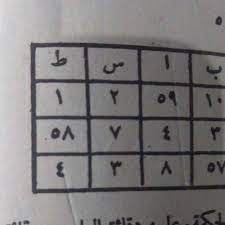 ب ا س ط
١٠ ٥٩ ٢ ١
٣ ٤ ٧ ٥٨
٥٧ ٨ ٣ ٤